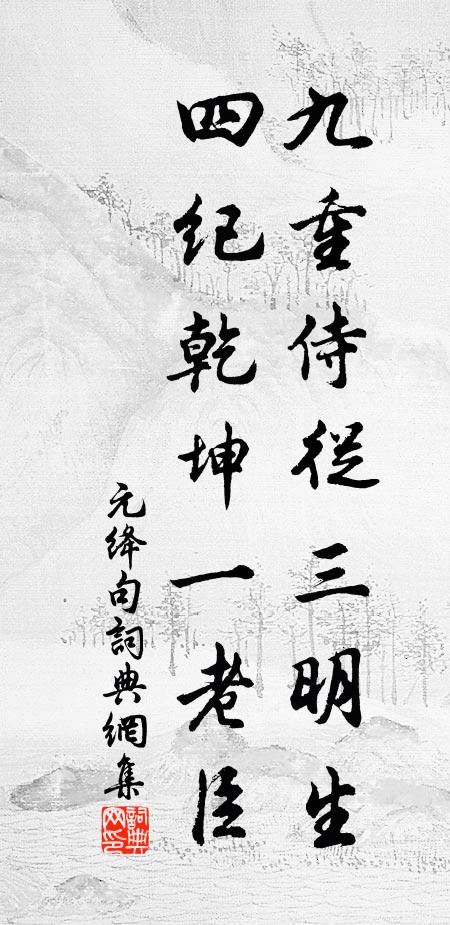 九重侍從三明生
四纪乾坤一老臣
元绛句詞典網集
詞典网印